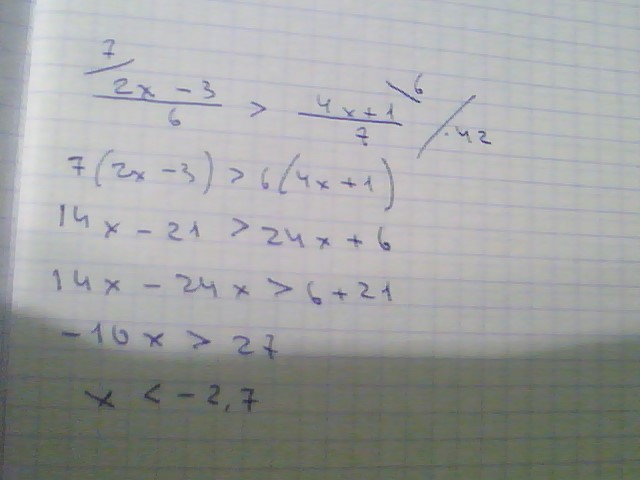 7 / (2x - 3)/6 > (4x + 1)/7 \ 6 / · 42
7(2x - 3) > 6(4x + 1)
14x - 21 > 24x + 6
14x - 24x > 6 + 21
-10x > 27
x < -2,7